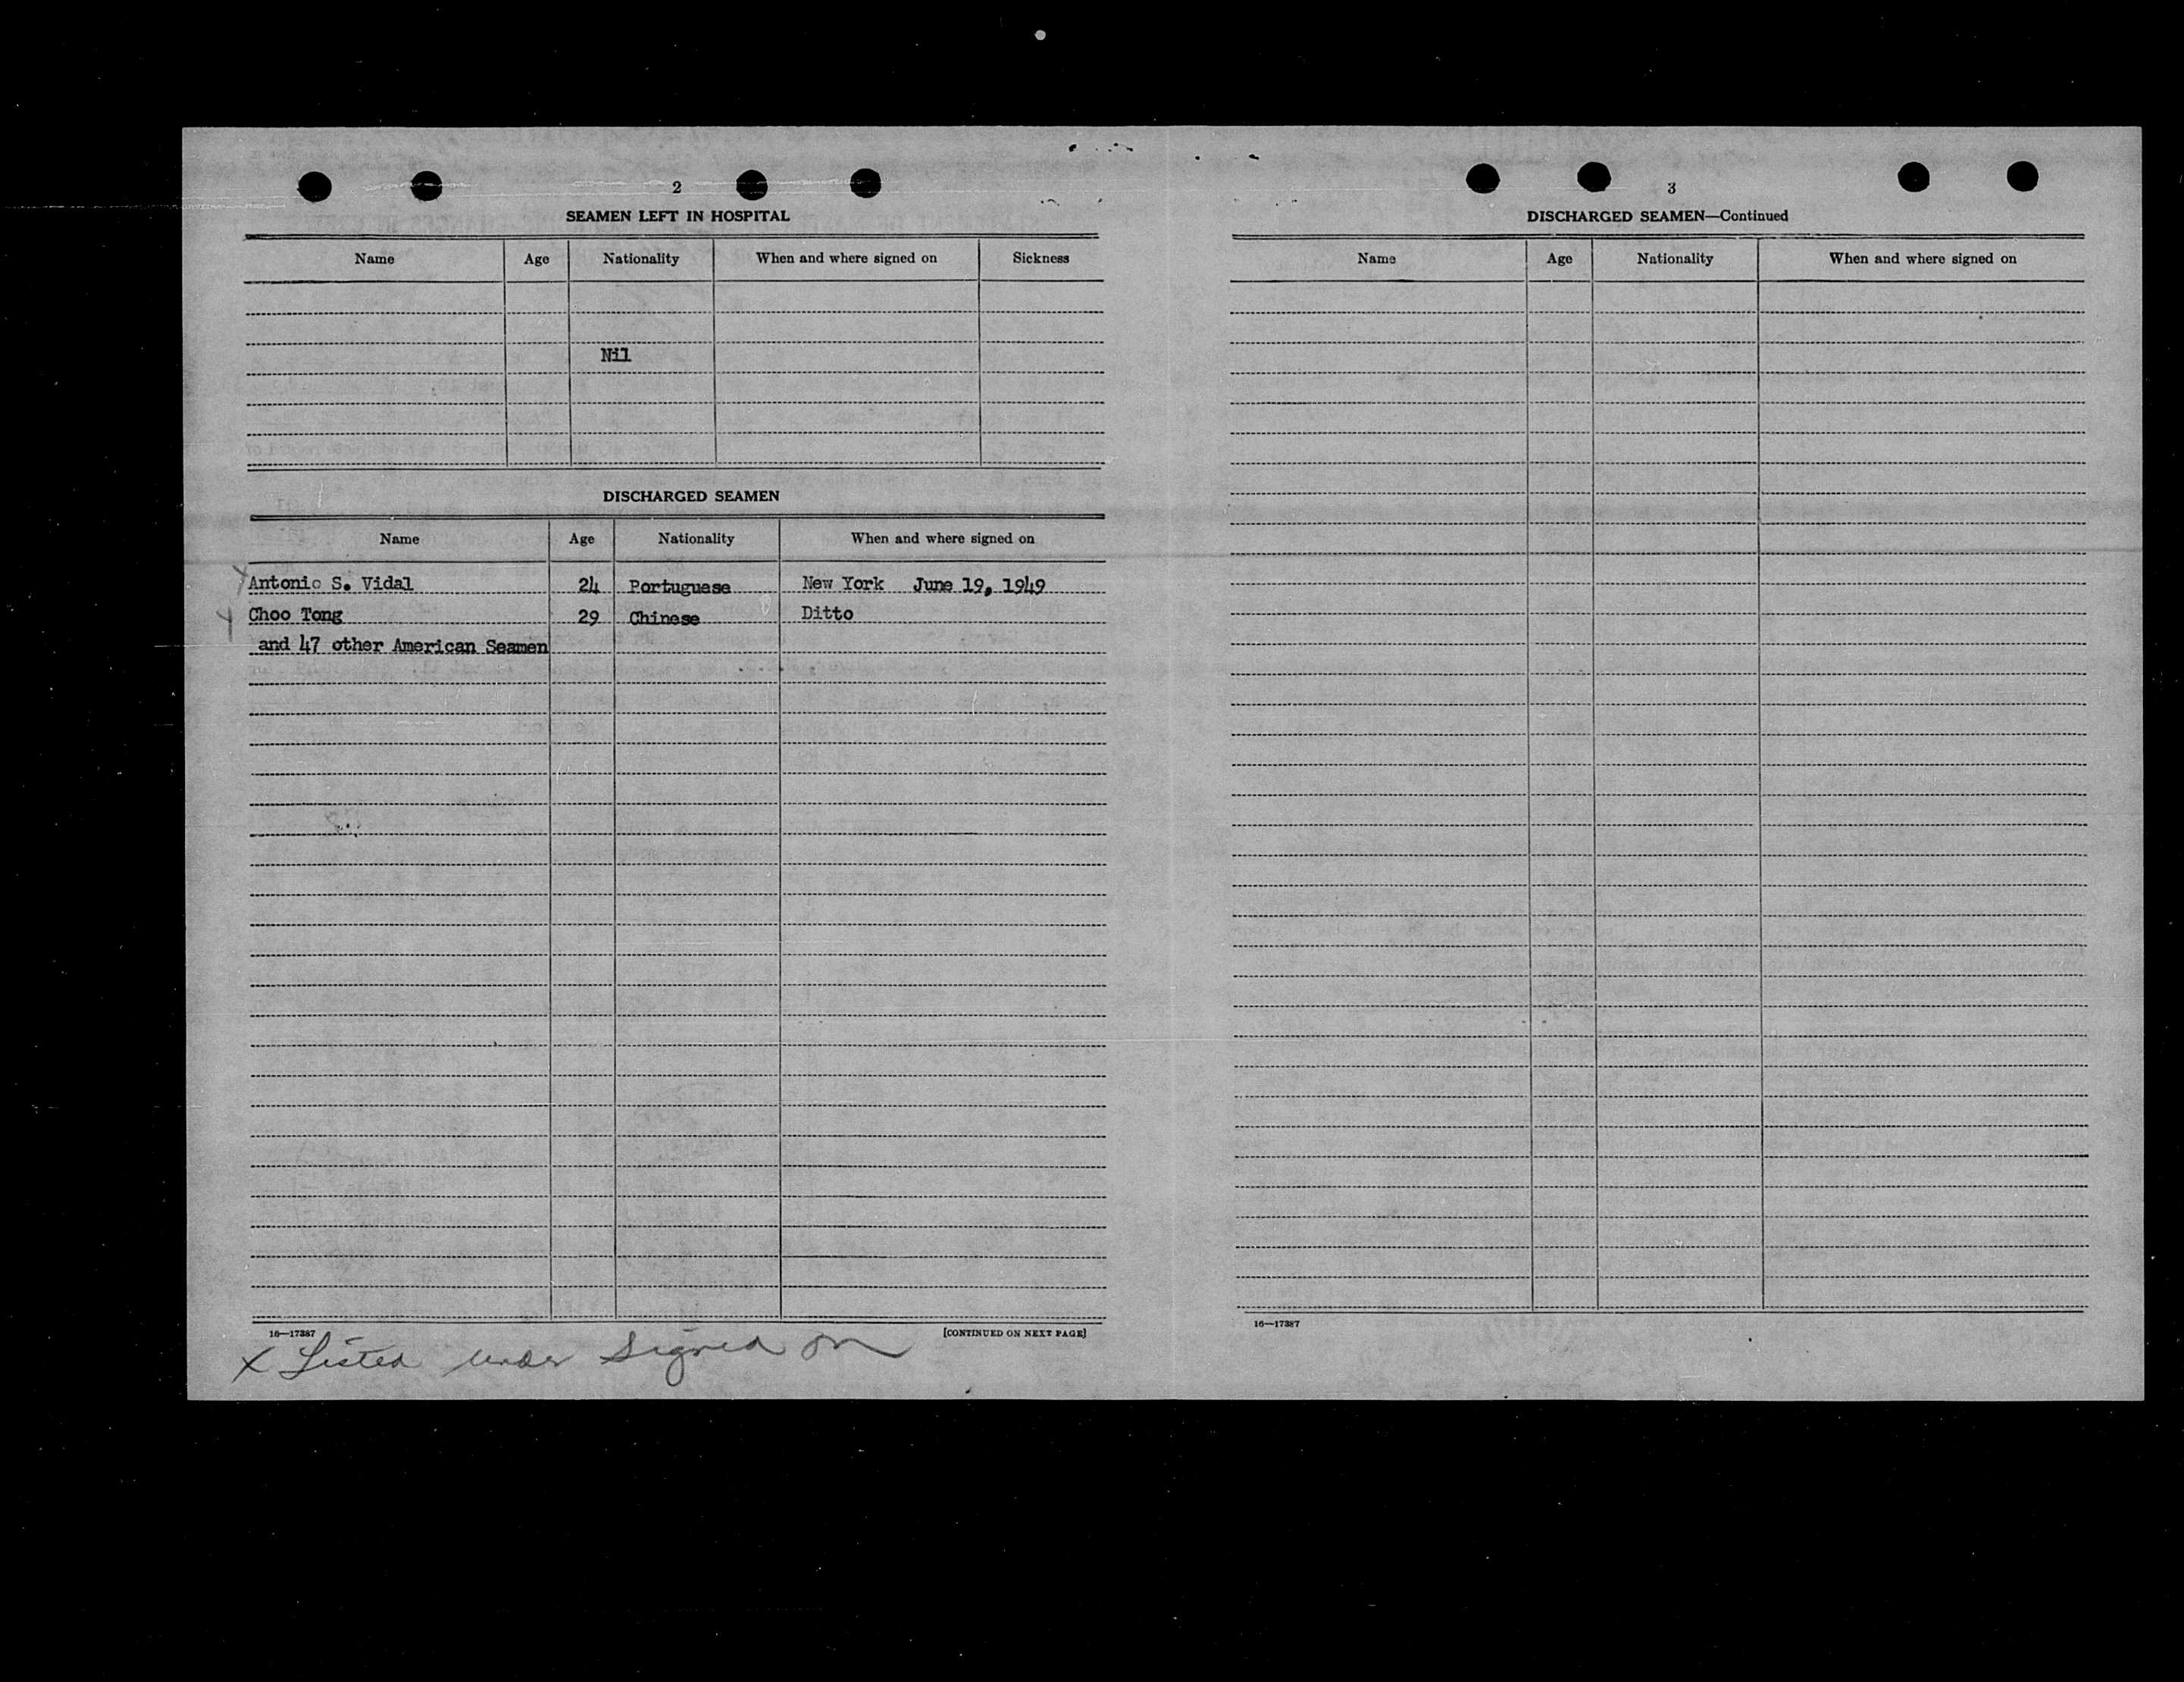 2
SEAMEN LEFT IN HOSPITAL
Name Age Nationality When and where signed on Sickness
Nil
DISCHARGED SEAMEN
Name Age Nationality When and where signed on
x Antonio S. Vidal 24 Portuguese New York June 19, 1949
x Choo Tong 29 Chinese Ditto
and 47 other American Seamen
16—17387 [CONTINUED ON NEXT PAGE]
x Listed under signed on
3
DISCHARGED SEAMEN—Continued
Name Age Nationality When and where signed on
16—17387